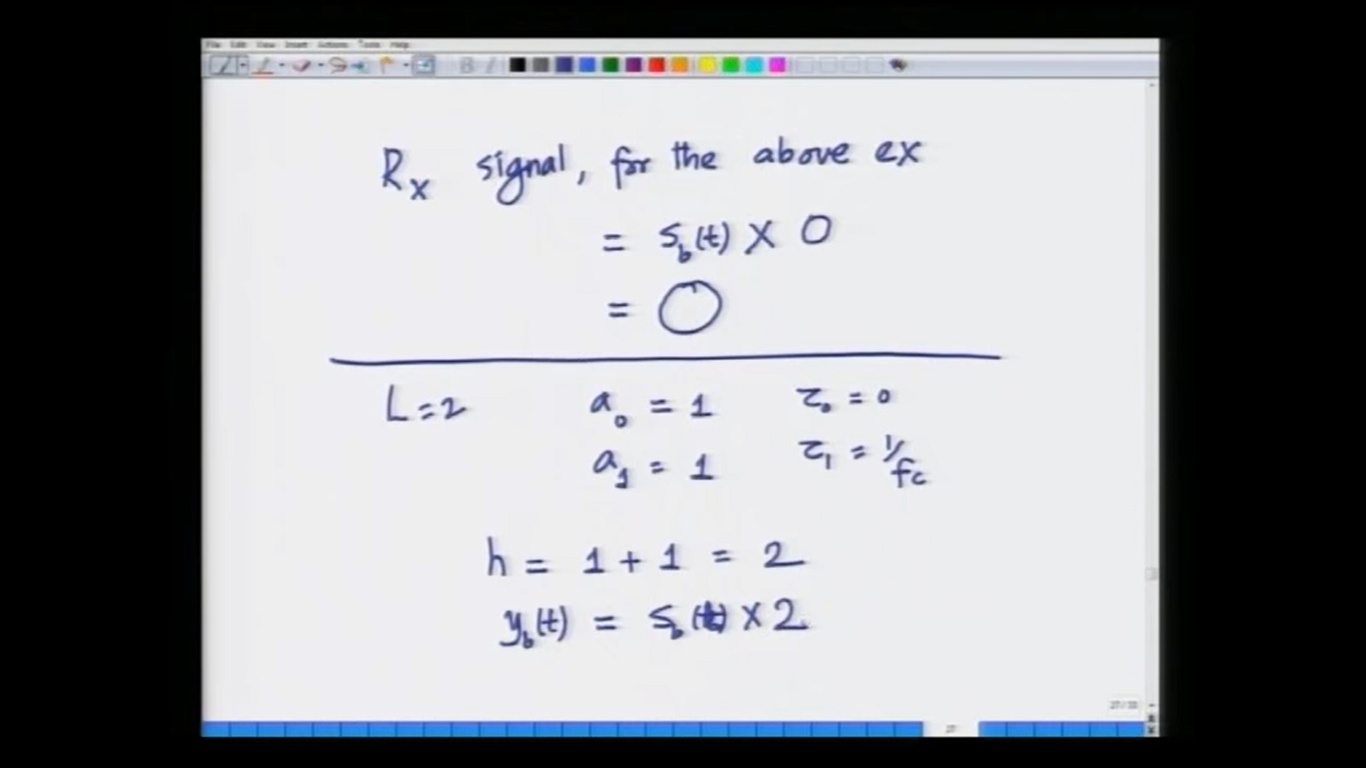 File Edit View Insert Actions Tools Help
Rx signal, for the above ex
= s_b(t) X 0
= 0
L=2 a₀ = 1 τ₀ = 0
a₁ = 1 τ₁ = 1/fc
h = 1 + 1 = 2
y_b(t) = s_b(t) X 2
27